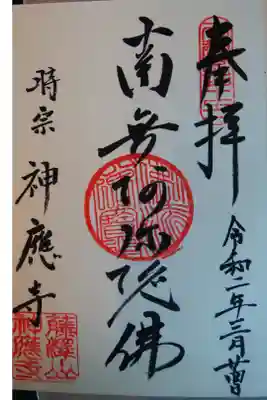 奉拝
令和二年三月
南無阿弥陀佛
時宗 神應寺
藤澤山
神應寺